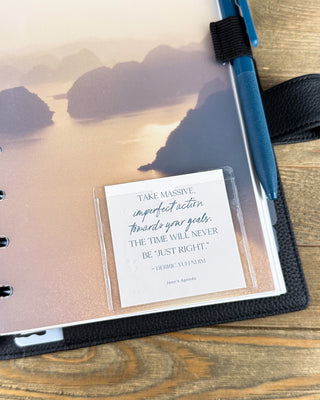 TAKE MASSIVE,
imperfect action
towards your goals.
THE TIME WILL NEVER
BE "JUST RIGHT."
~ DEBBIE YUH NUIM
Janet's Agenda